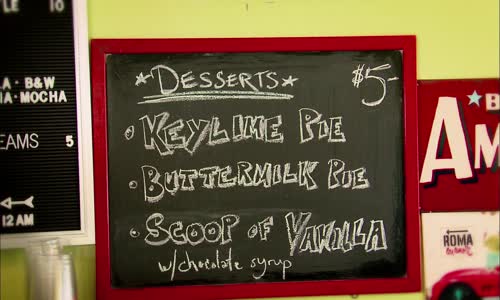 LE 10
A · B&W
IA · MOCHA
EAMS 5
12 AM
*DESSERTS* $5-
• KEYLIME PIE
• BUTTERMILK PIE
• SCOOP OF VANILLA
w/chocolate syrup
★ B
AM
ROMA